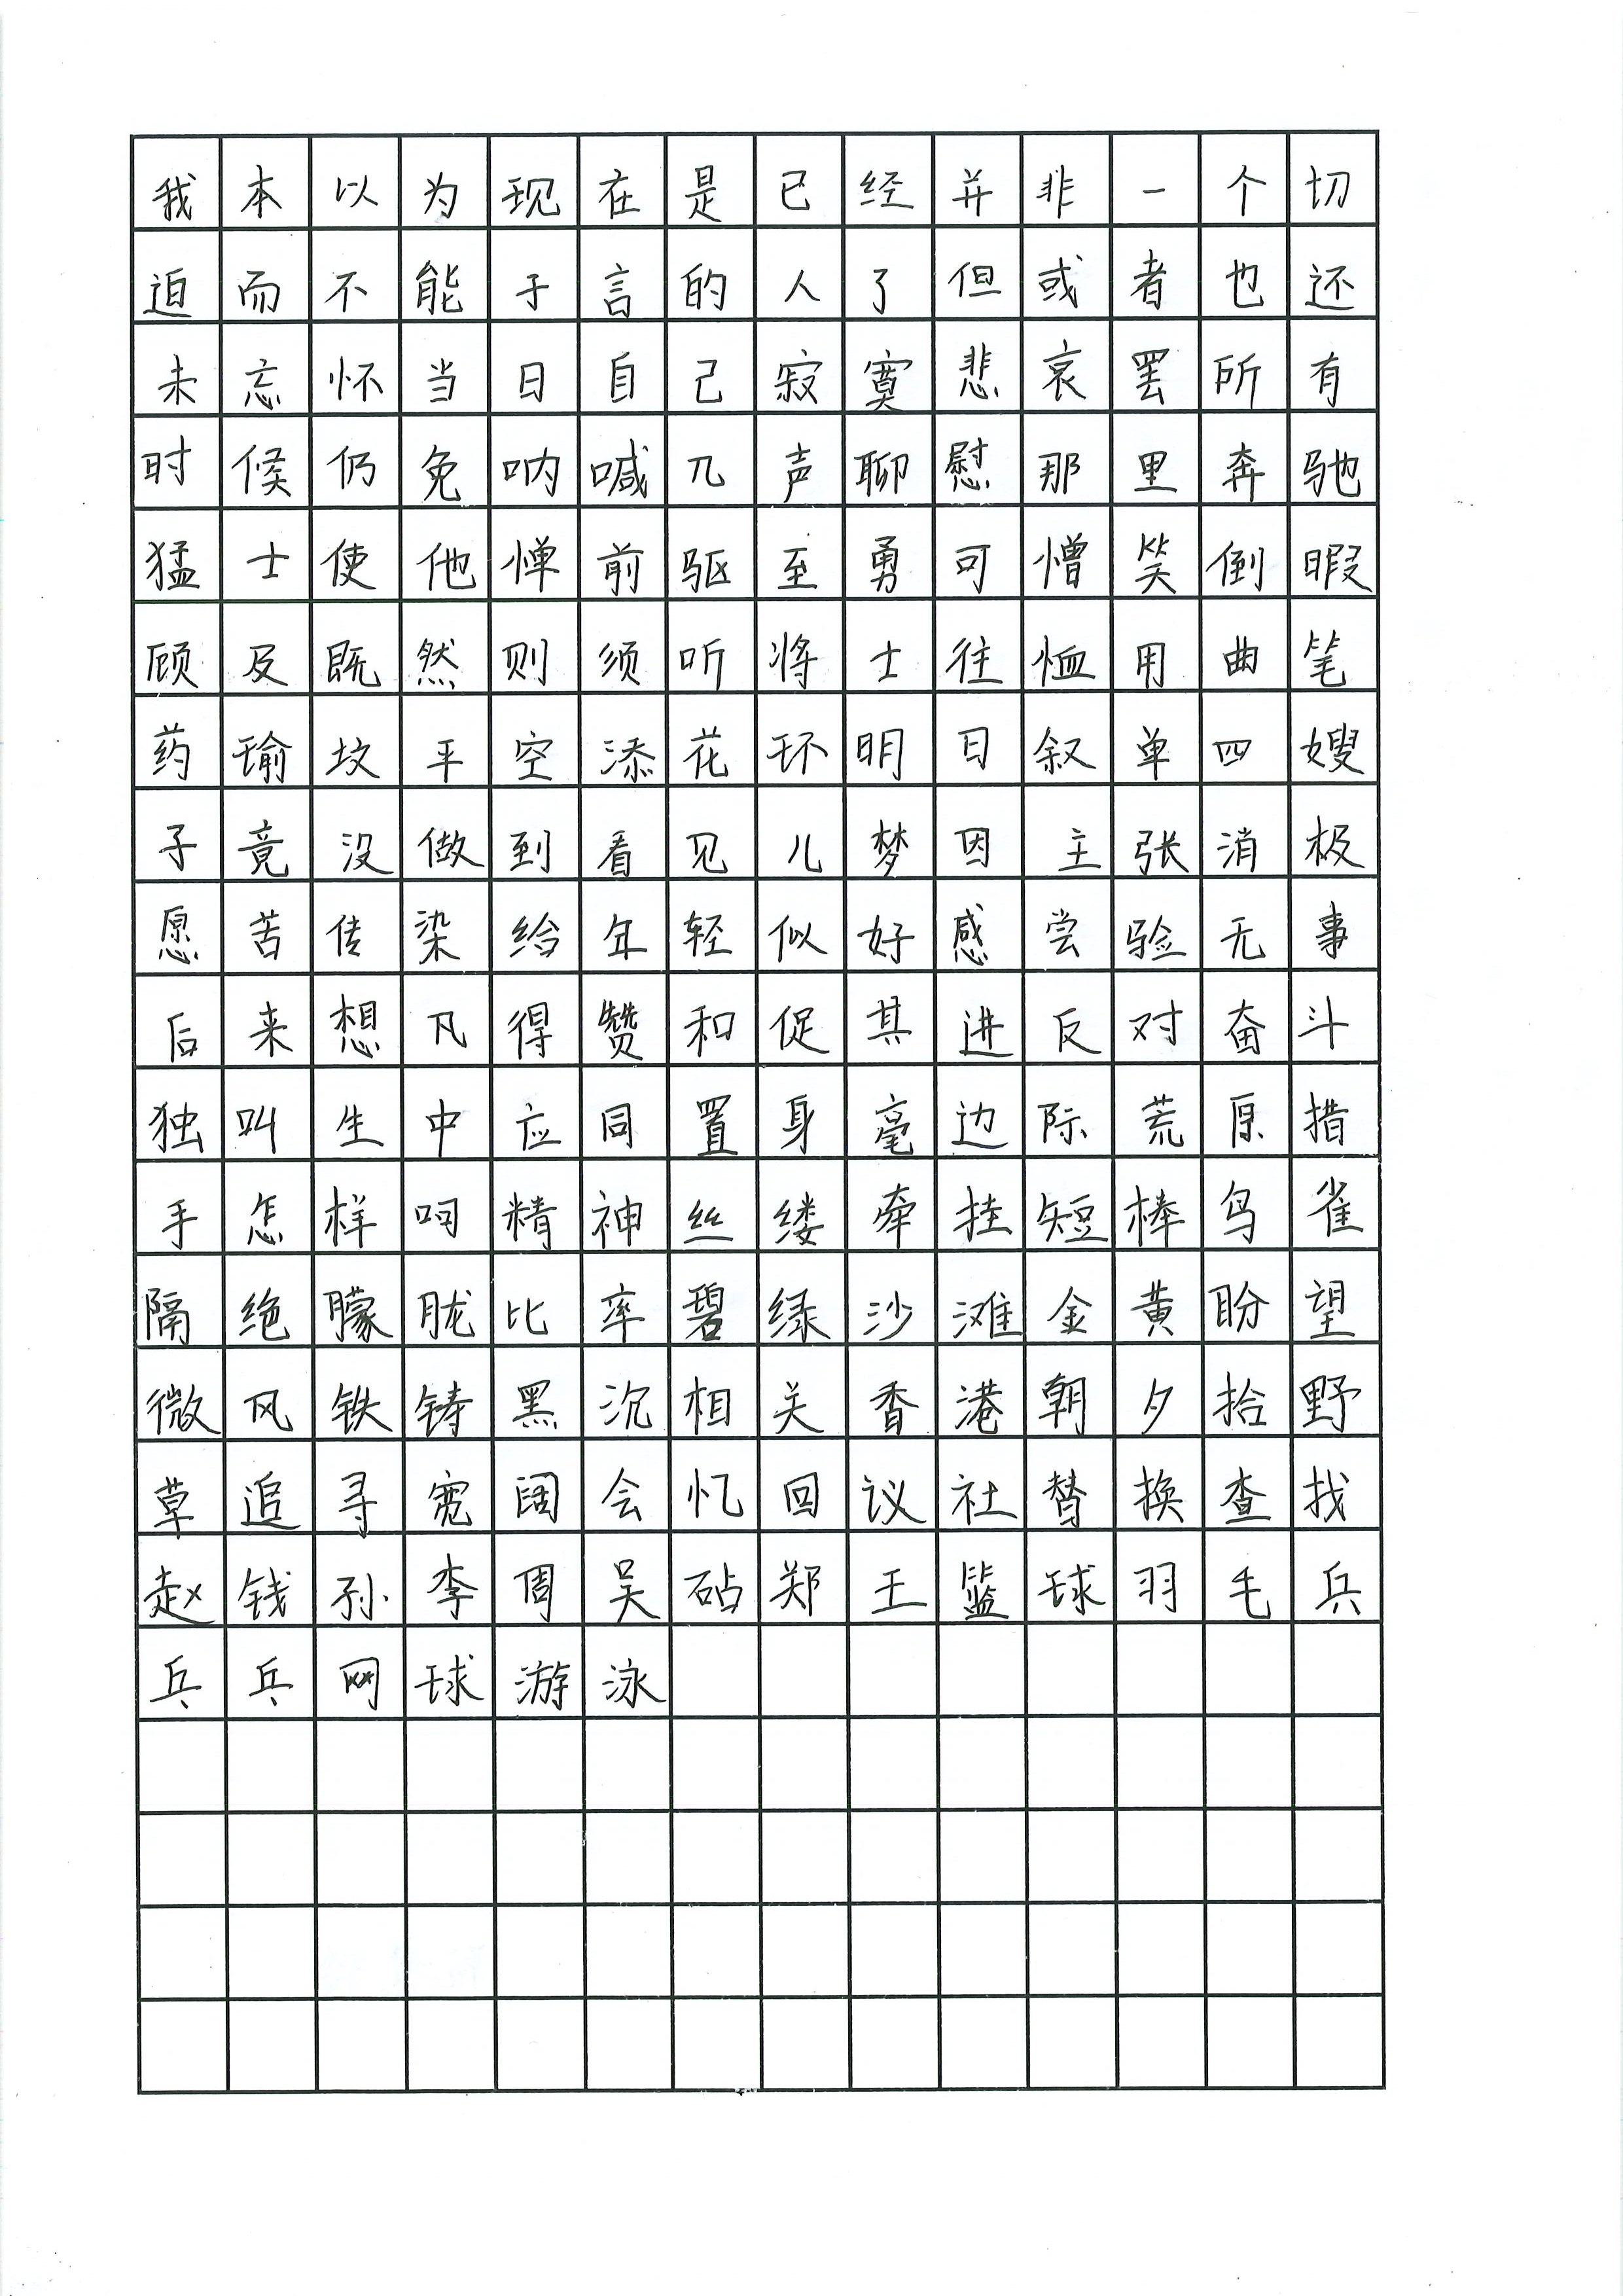 我本以为现在是已经并非一个切
迫而不能于言的人了但或者也还
未忘怀当日自己寂寞悲哀罢所有
时候仍免呐喊几声聊慰那里奔驰
猛士使他惮前驱至勇可憎笑倒暇
顾及既然则须听将士往恤用曲笔
药瑜坟平空添花环明日叙单四嫂
子竟没做到看见儿梦因主张消极
愿苦传染给年轻似好感尝验无事
后来想凡得赞和促其进反对奋斗
独叫生中应同置身毫边际荒原措
手怎样呵精神丝缕牵挂短棒鸟雀
隔绝朦胧比率碧绿沙滩金黄盼望
微风铁铸黑沉相关香港朝夕拾野
草追寻宽阔会忆回议社替换查找
赵钱孙李周吴砧郑王篮球羽毛兵
乓乒网球游泳